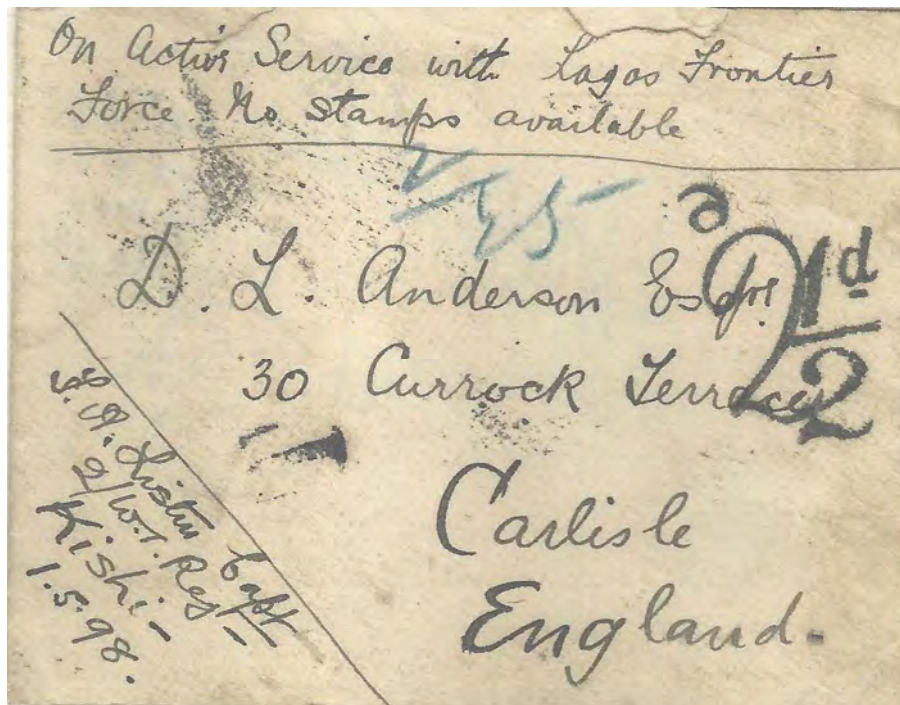 On Active Service with Lagos Frontier
Force. No stamps available
D. L. Anderson Esqre
30 Currock Terrace
Carlisle
England.
2 1/2 d
Capt
2/W.I. Reg
Kishi -
1.5.98.